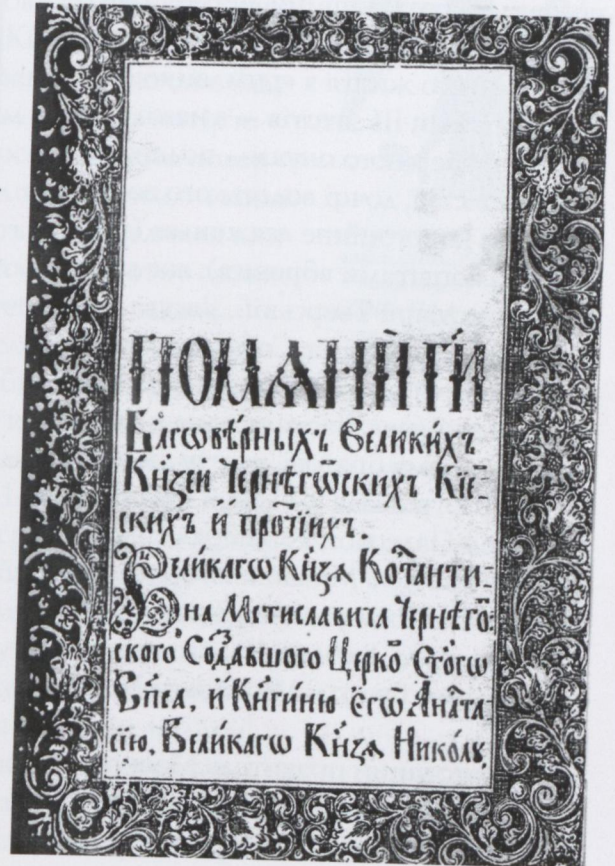 ПОМѦНИ ГИ
Блг҃овѣрныхъ Великихъ
Кн҃зей Чернѣго҃вскихъ Кіе҃-
скихъ и прот҃чіихъ.
Великагѡ Кн҃зѧ Ко҃танти-
на Мстиславича Чернѣго҃-
ского Со҃давшого Церко҃ Ст҃огѡ
Сп҃са, и Кн҃гиню егѡ Ана҃та-
сїю, Великагѡ Кн҃зѧ Николꙋ,